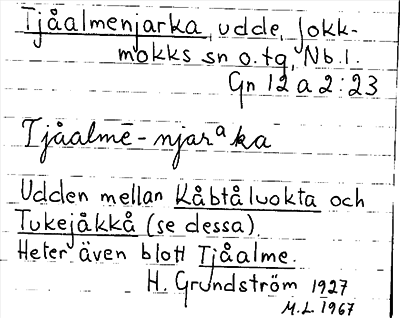 Tjåalmenjarka, udde, Jokk-
mokks sn o. tg, Nb. l.
Gn 12 a 2:23
Tjåalmē-njarᵃka
Udden mellan Kåbtåluokta och
Tukejåkkå (se dessa).
Heter även blott Tjåalme.
H. Grundström 1927
M.L. 1967